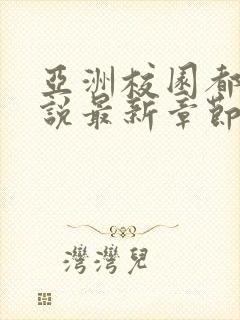 亞洲校園都
說最新章節
灣灣兒